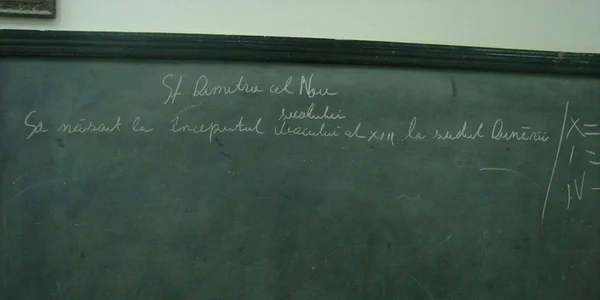 Sf Dimitrie cel Nou
secolului
Sa născut la începutul veacului al XIII la sudul Dunării
X=
I=
IV-